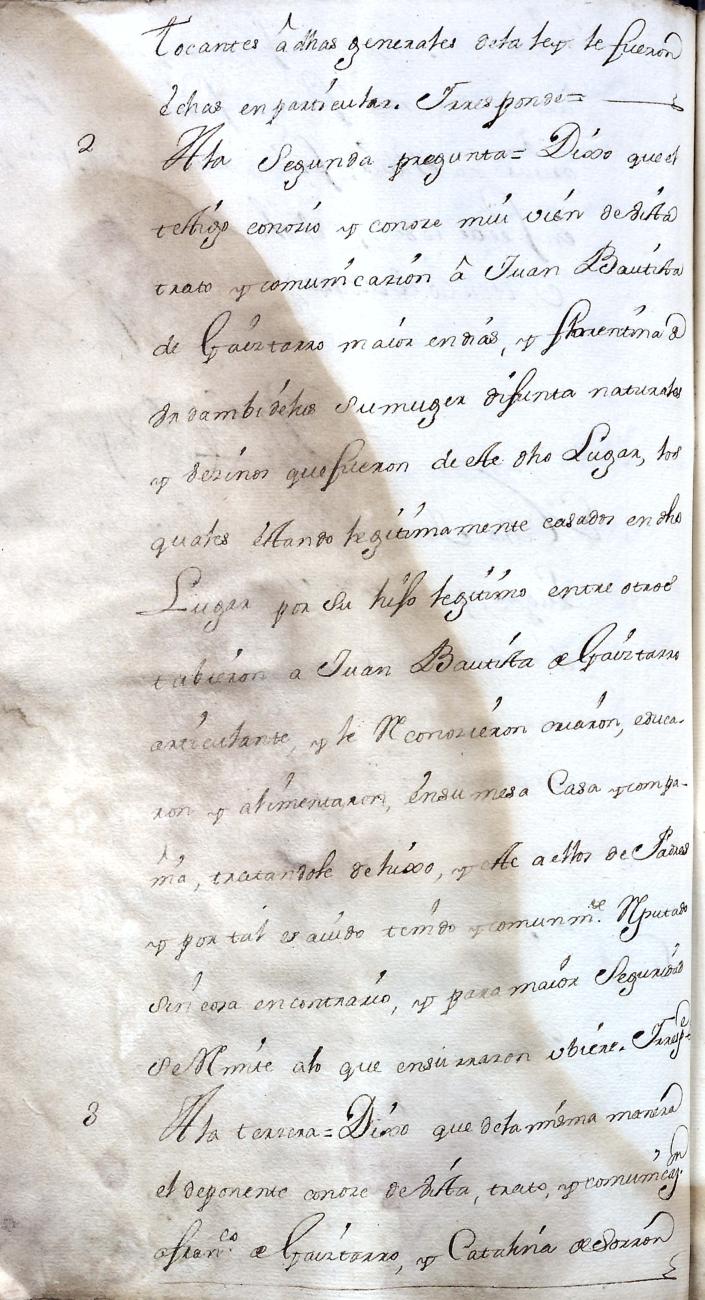 Tocantes â dhas generales dela ley le fueron
échas en particular. Yrresponde=
2 A la Segunda pregunta= Dixo que el
testigo conozió y conoze mui vién de vista
trato y comunicazión â Juan Bautista
de Gaiztarro maior en dias, y florentina de
su muger difunta naturales
y vezinos que fueron de este dho Lugar, los
quales éstando legitimamente casados en dho
Lugar por su hijo legitimo entre otros
tubieron a Juan Bautista de Gaiztarro
articulante, y le Reconozieron criaron, educa-
ron y alimentaron, en su mesa Casa y compa-
ñia, tratandole de hixo, y este a ellos de Padres
y por tal es avido tenido y comunmte. Reputado
sin cosa en contrario, y para maior Seguridad
se Remite alo que en su rrazon ubiere. Yrrespe
3 A la terzera= Dixo que dela misma manera
el deponente conoze de vista, trato, y comunicazn.
a franco. de Gaiztarro, y Catalina de Sorrón